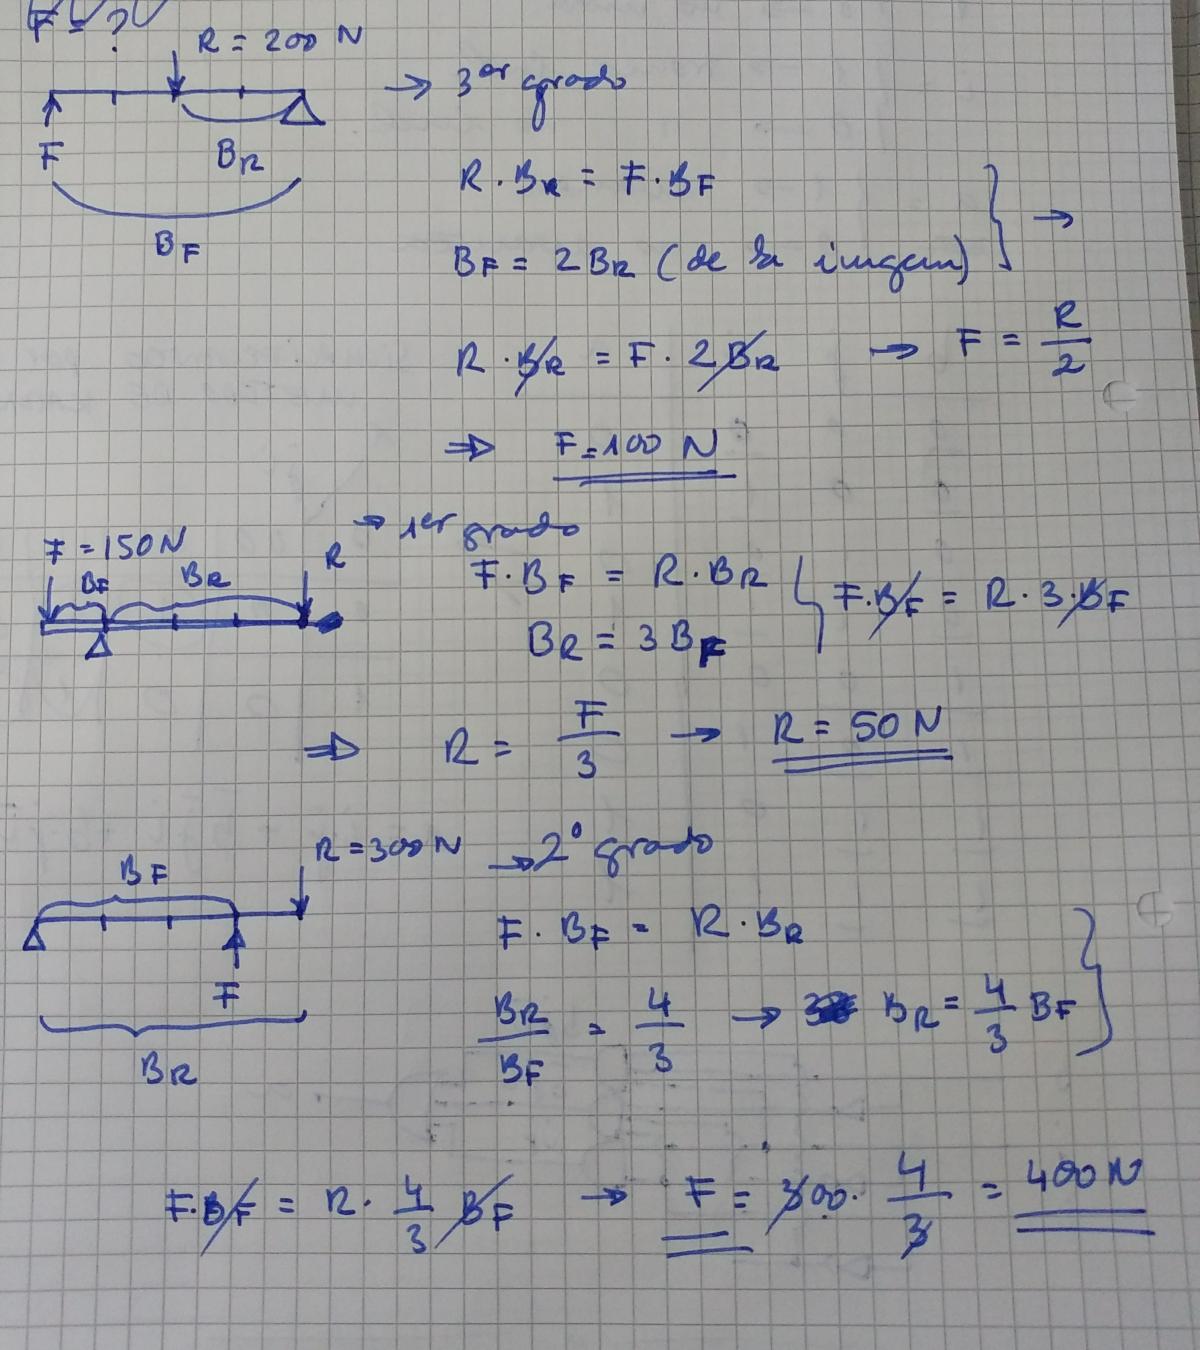 F = ?
R = 200 N
→ 3er grado
F
BR
BF
R · BR = F · BF
→
BF = 2BR (de la imagen)
R · BR = F · 2BR → F = R/2
⇒ F = 100 N
F = 150 N
BF
BR
R
→ 1er grado
F · BF = R · BR
BR = 3BF
F · BF = R · 3 · BF
⇒ R = F/3 → R = 50 N
R = 300 N
→ 2º grado
BF
F
BR
F · BF = R · BR
BR/BF = 4/3 → BR = 4/3 BF
F · BF = R · 4/3 BF → F = 300 · 4/3 = 400 N